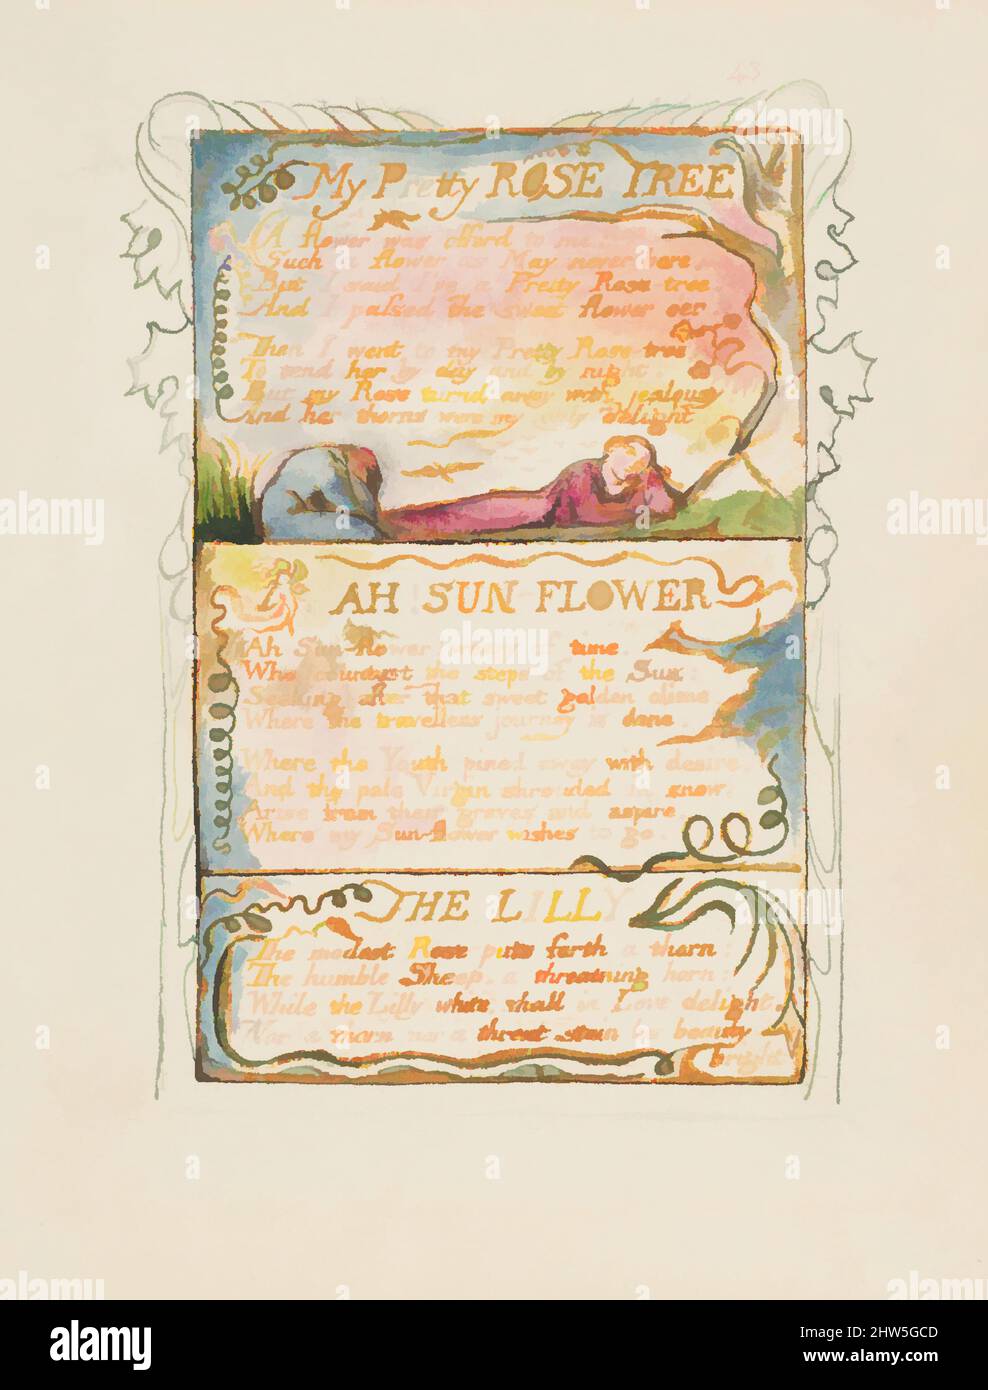 43
My Pretty ROSE TREE
A flower was offerd to me
Such a flower as May never bore
But I said I've a Pretty Rose-tree
And I passed the sweet flower oer
Then I went to my Pretty Rose-tree
To tend her by day and by night.
But my Rose turnd away with jealousy
And her thorns were my only delight
AH SUN FLOWER
Ah Sun-flower weary of time.
Who countest the steps of the Sun:
Seeking after that sweet golden clime
Where the travellers journey is done.
Where the Youth pined away with desire,
And the pale Virgin shrouded in snow:
Arise from their graves and aspire,
Where my Sun-flower wishes to go.
THE LILLY
The modest Rose puts forth a thorn:
The humble Sheep, a threatning horn:
While the Lilly white, shall in Love delight,
Nor a thorn nor a threat stain her beauty
bright
alamy
alamy
Image ID: 2HW5GCD
www.alamy.com